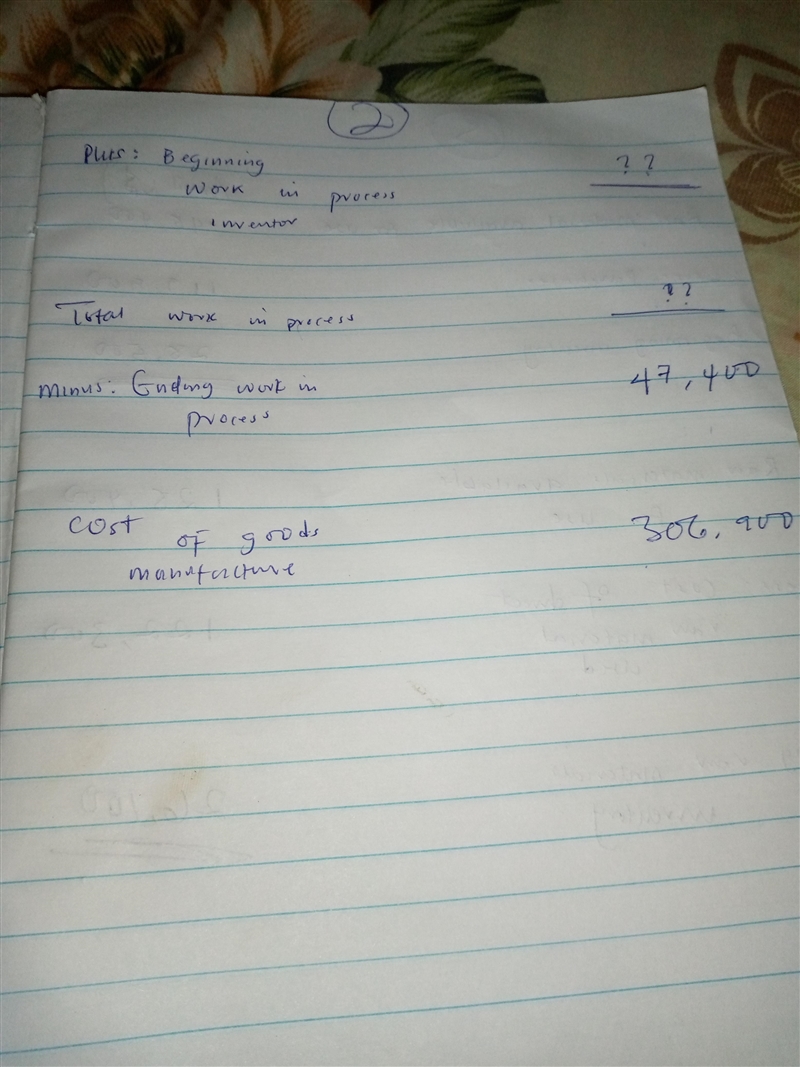 2
Plus: Beginning ??
work in process
inventor
Total work in process ??
Minus: Ending work in 47,400
process
Cost of goods 306,900
manufacture